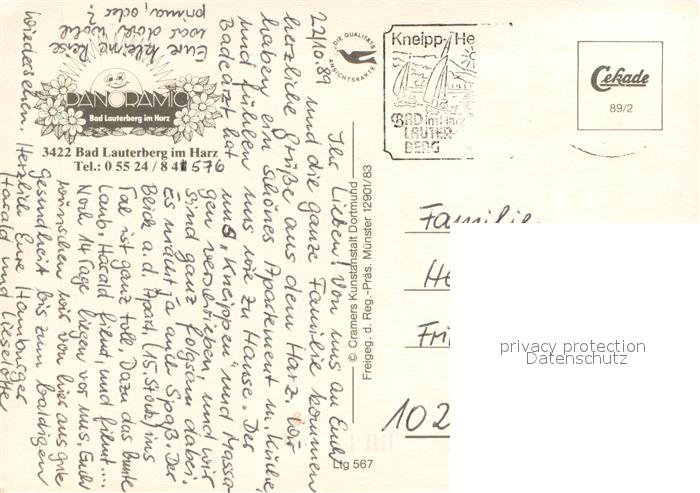 22/10.89
Ihr Lieben! Von uns an Euch
und die ganze Familie kommen
herzliche Grüße aus dem Harz, wir
haben ein schönes Apartement m. Küche,
und fühlen uns wie zu Hause. Der
Badearzt hat uns „Kneippen" und Massa-
gen verschrieben, und wir
sind ganz folgsam dabei.
Es macht ja auch Spaß. Der
Blick a. d. Apart. (15. Stock) ins
Tal ist ganz toll. Dazu das bunte
Laub. Harald filmt, und filmt....
Noch 14 Tage liegen vor uns. Euch
wünschen wir von hier aus gute
Gesundheit bis zum baldigen
Wiedersehen. Herzlich Eure Hamburger
Harald und Lieselotte
Eure kleine Reise
war doch wohl
prima, oder?
PANORAMIC
Bad Lauterberg im Harz
3422 Bad Lauterberg im Harz
Tel.: 0 55 24 / 8 4 1576
DIE QUALITÄTS
ANSICHTSKARTE
© Cramers Kunstanstalt Dortmund
Freigeg. d. Reg.-Präs. Münster 12901/83
Ltg 567
Kneipp-He
BAD im Harz
LAUTER-
BERG
Cekade
89/2
Familie
He
Fri
102
privacy protection
Datenschutz